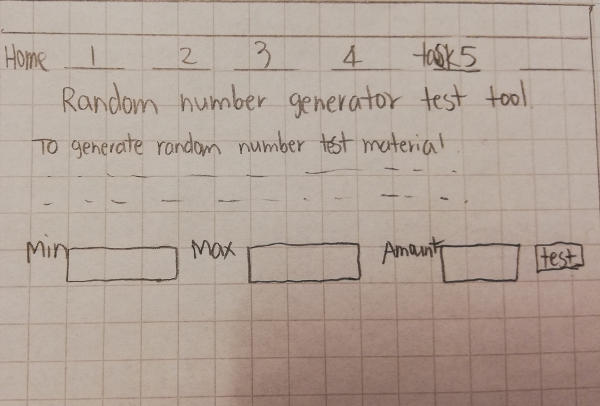 Home 1 2 3 4 task5
Random number generator test tool
To generate random number test material.
Min Max Amount test